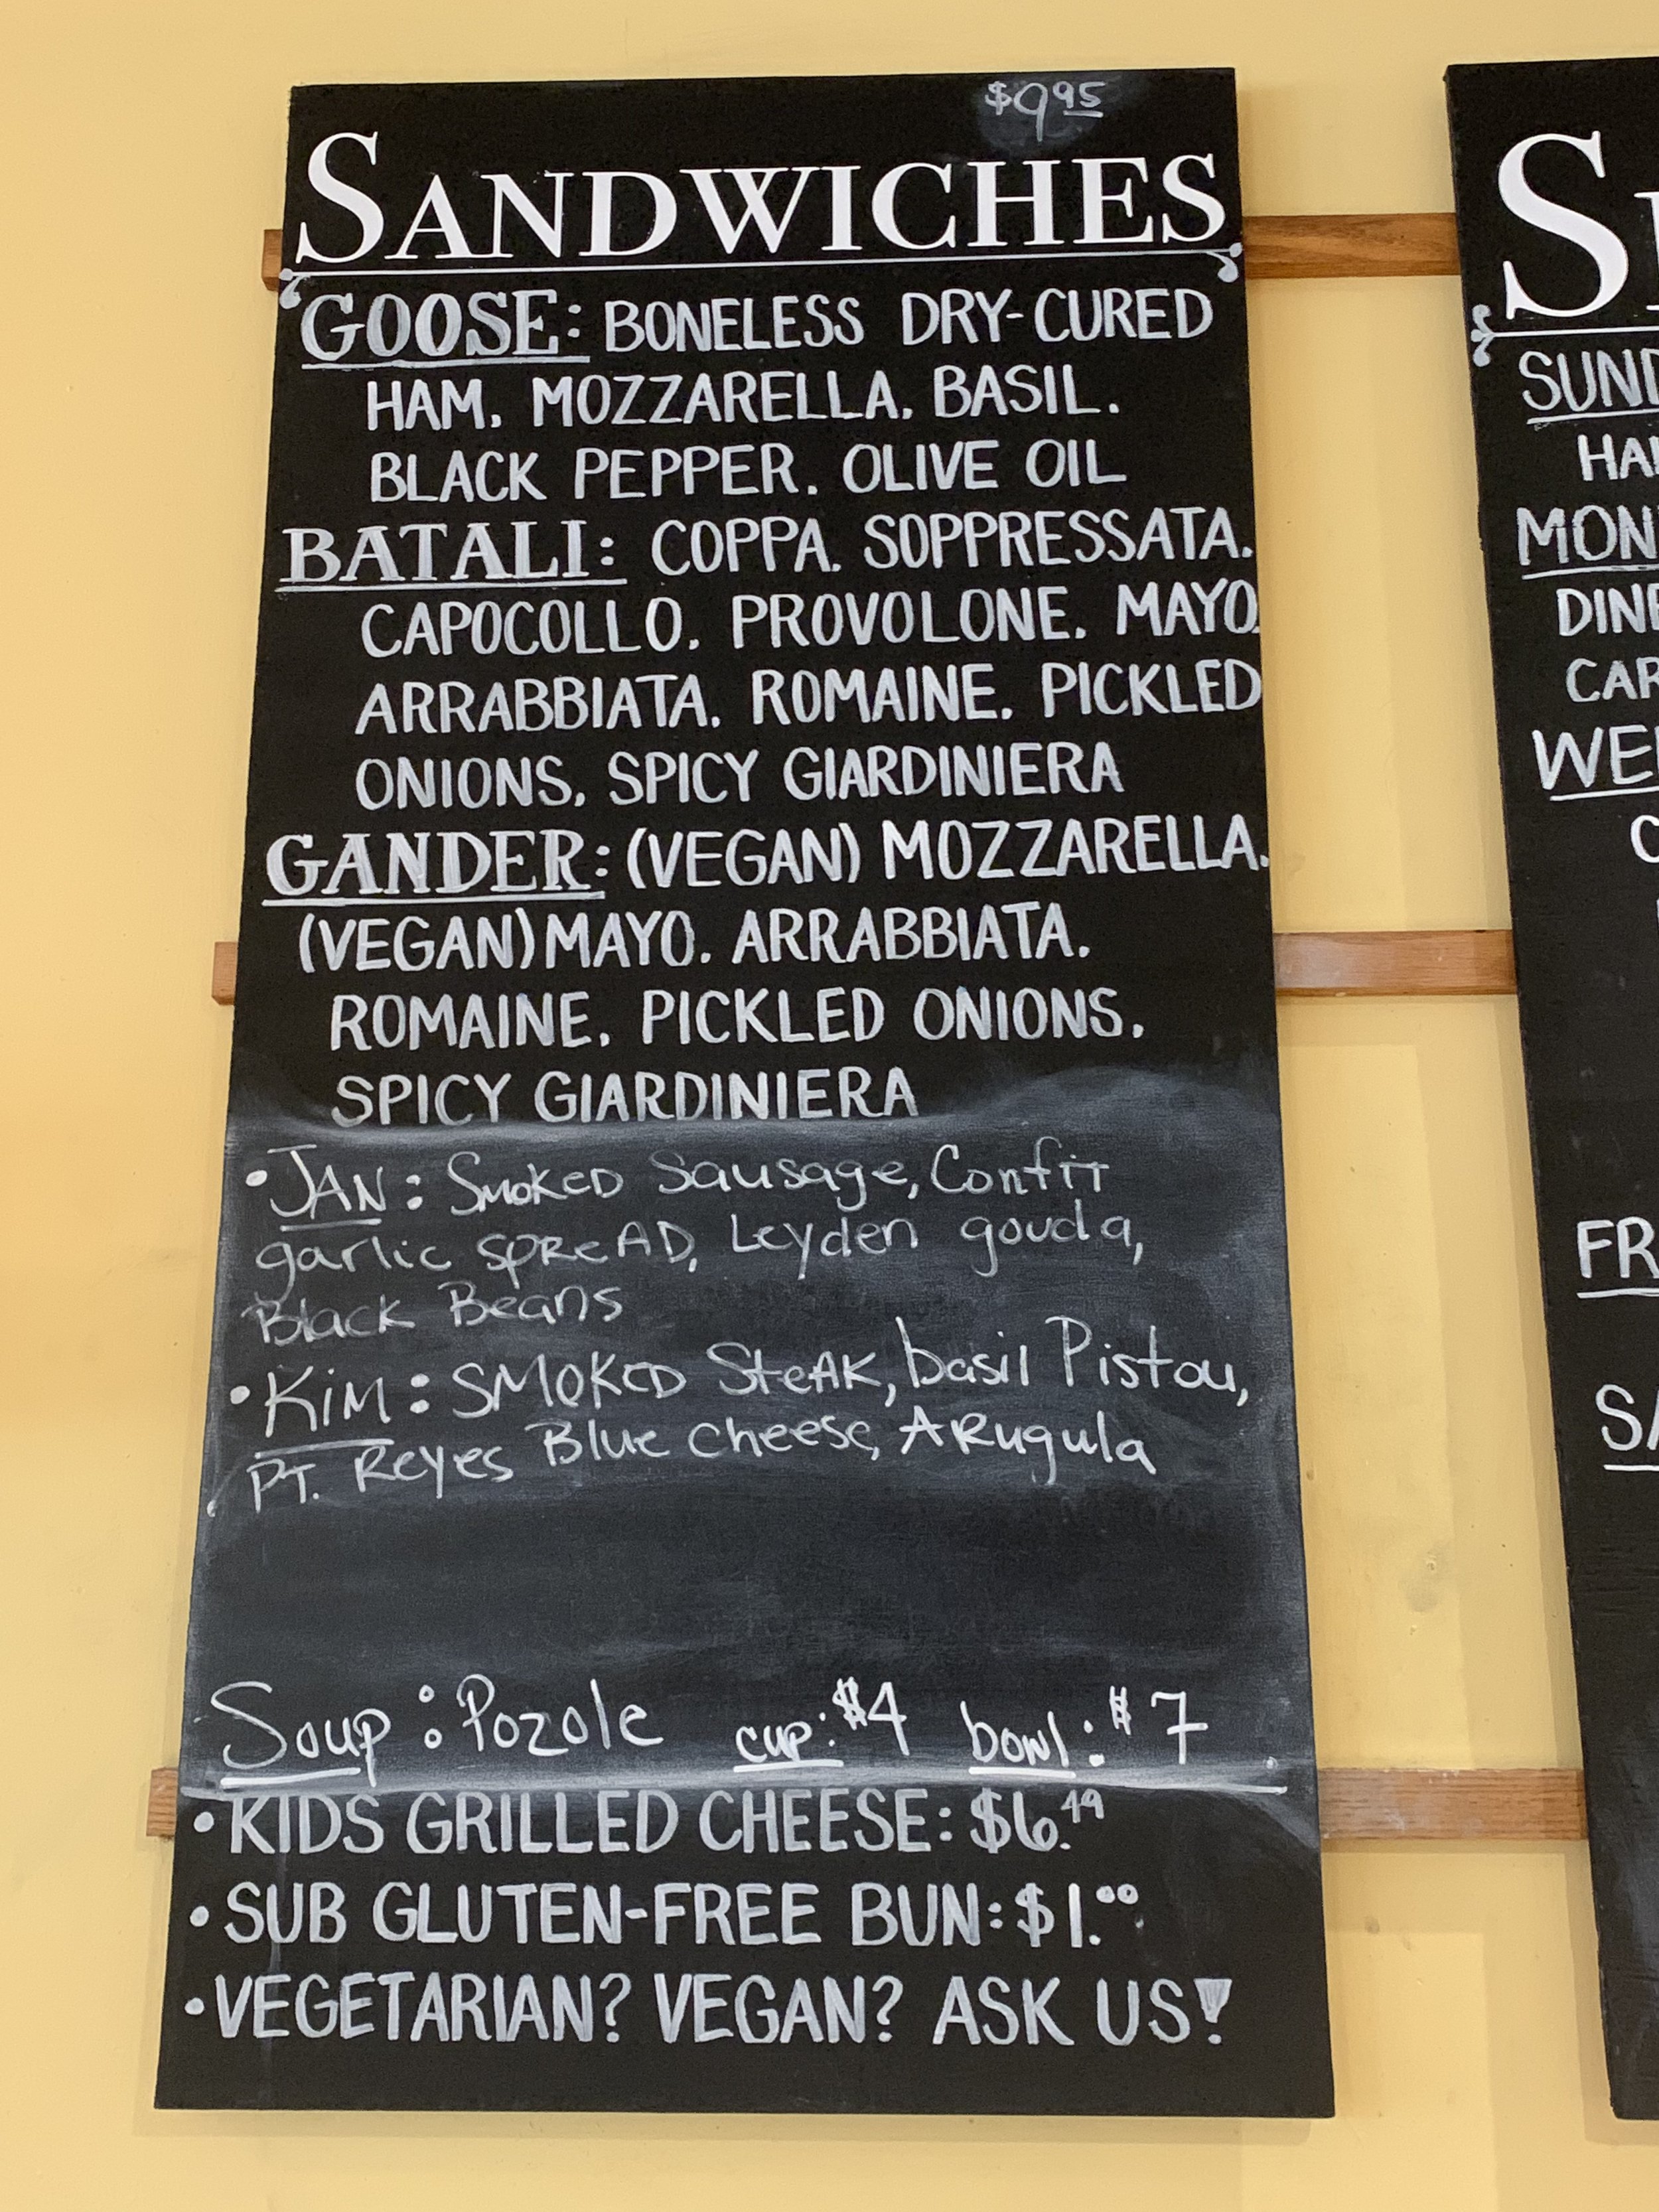 $9 95
SANDWICHES
GOOSE: BONELESS DRY-CURED
HAM. MOZZARELLA. BASIL.
BLACK PEPPER. OLIVE OIL
BATALI: COPPA. SOPPRESSATA.
CAPOCOLLO. PROVOLONE. MAYO.
ARRABBIATA. ROMAINE. PICKLED
ONIONS. SPICY GIARDINIERA
GANDER: (VEGAN) MOZZARELLA.
(VEGAN) MAYO. ARRABBIATA.
ROMAINE. PICKLED ONIONS.
SPICY GIARDINIERA
• JAN: SMOKED Sausage, Confit
garlic SPReAD, Leyden gouda,
Black Beans
• KiM: SMOKED SteAK, basil Pistou,
PT. Reyes Blue cheese, ARugula
Soup: Pozole cup: $4 bowl: $7
• KIDS GRILLED CHEESE: $6.49
• SUB GLUTEN-FREE BUN: $1.00
• VEGETARIAN? VEGAN? ASK US!
S
SUND
HA
MON
DIN
CAR
WE
C
FR
SA